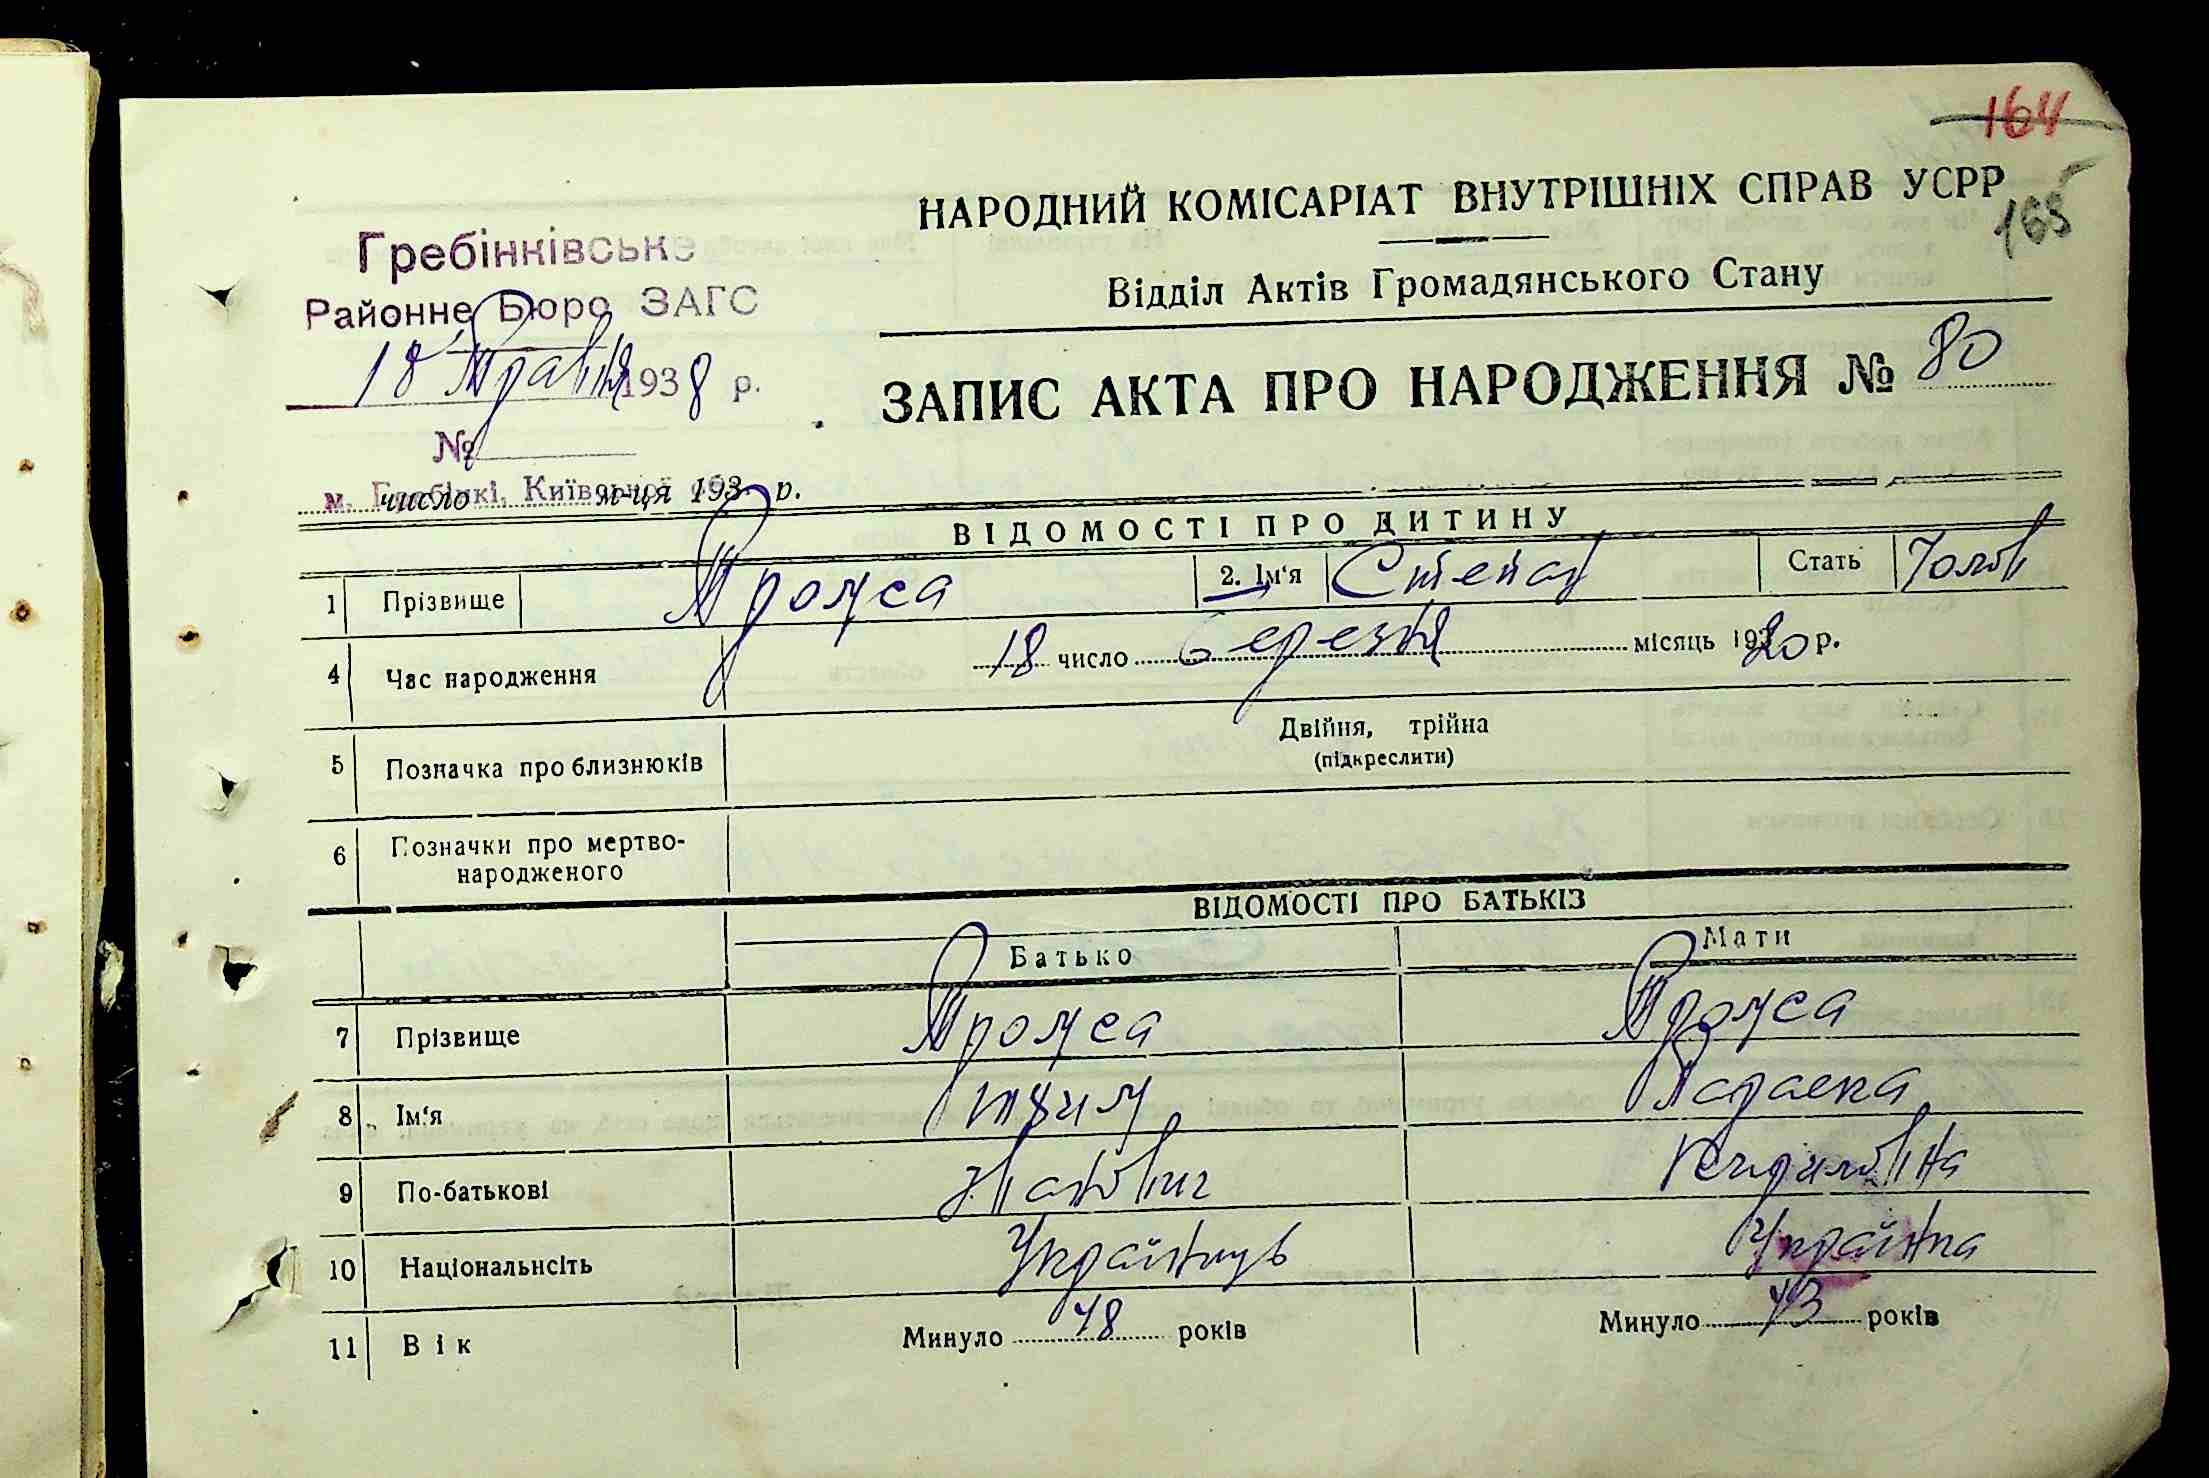 164
165
НАРОДНИЙ КОМІСАРІАТ ВНУТРІШНІХ СПРАВ УСРР
Відділ Актів Громадянського Стану
Гребінківське
Районне Бюро ЗАГС
18 Травня 1938 р.
№
м. Гребінкі, Київської
число м-ця 193 р.
ЗАПИС АКТА ПРО НАРОДЖЕННЯ № 80
ВІДОМОСТІ ПРО ДИТИНУ
1 Прізвище 2. Ім‘я Степан Стать Чолов
4 Час народження 18 число Березня місяць 1920 р.
5 Позначка про близнюків Двійня, трійна
(підкреслити)
6 Позначки про мертво-
народженого
ВІДОМОСТІ ПРО БАТЬКІЗ
Батько Мати
7 Прізвище
8 Ім‘я
9 По-батькові Кириловна
10 Національнсіть Українець Українка
11 Вік Минуло 48 років Минуло 43 років